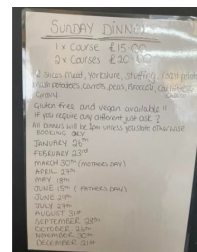 SUNDAY DINNER
1 x Course £15.00
2 x Courses £20.00
2 slices meat, Yorkshire, stuffing, roast potatoes
mash potatoes, carrots, peas, Broccoli, Cauliflower
Gravy
Gluten free and vegan available !!
If you require any different just ask ?
All dinners will be 1pm unless you state otherwise
BOOKING ONLY
JANUARY 26th
FEBRUARY 23rd
MARCH 30th (MOTHERS DAY)
APRIL 27th
MAY 18th
JUNE 15th (FATHERS DAY)
JUNE 29th
JULY 27th
AUGUST 31st
SEPTEMBER 28th
OCTOBER 26th
NOVEMBER 30th
DECEMBER 21st